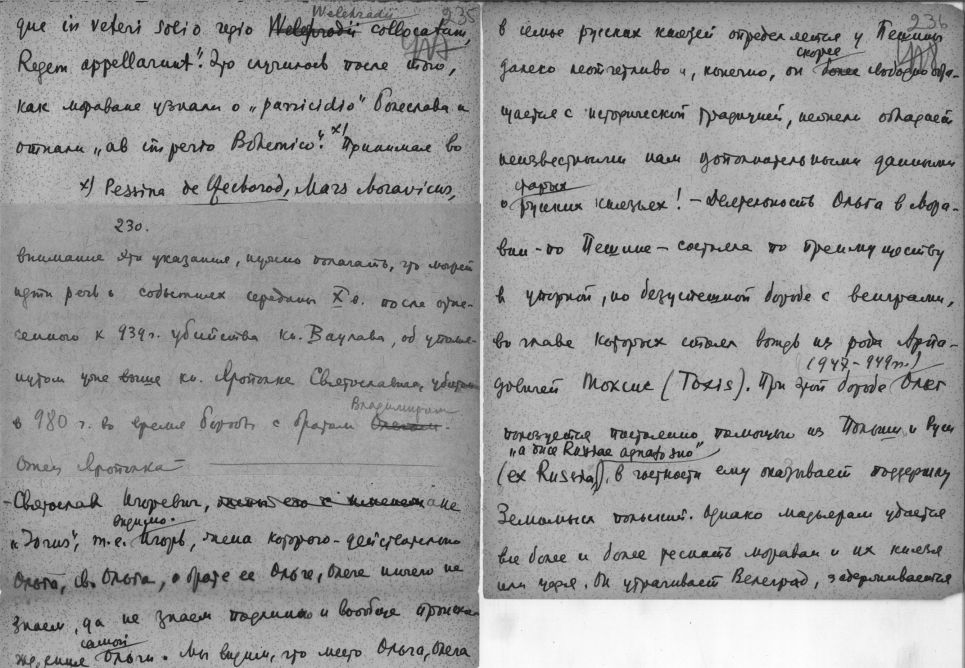 235
Welehradii
que in veteri solio regio Welehradii collocatum,
Regem appellarunt". Это случилось после того,
как мораване узнали о „parricidio" Болеслава и
отпали „ab imperio Bohemico". x) Принимая во
x) Pessina de Czechorod, Mars Moravicus,
230.
внимание эти указания, нужно полагать, что может
идти речь о событиях середины X в. после отне-
сенного к 939 г. убийства кн. Вацлава, об упомя-
нутом уже выше кн. Ярополке Святославиче, убитом
Владимиром
в 980 г. во время борьбы с братом Олегом.
Отец Ярополка
- Святослав Игоревич, а не
видимо
„Iorius", т.е. Игорь, жена которого - действительно
Ольга, св. Ольга, о брате ее Ольге, Олеге ничего не
знаем, да не знаем подлинно и вообще происхо-
самой
ждение Ольги. Мы видим, что место Ольга, Олега
236
в семье русских князей определяется у Пешины
скорее
далеко неотчетливо и, конечно, он более свободно обра-
щается с исторической традицией, нежели обладает
неизвестными нам дополнительными данными
старых
о русских князьях! - Деятельность Ольга в Мора-
вии - по Пешине - состояла по преимуществу
в упорной, но безуспешной борьбе с венграми,
во главе которых стоял вождь из рода Арпа-
(947-949 гг.)
довичей Токсис (Toxis). При этой борьбе Олег
пользуется постоянно помощью из Польши и Руси
„a duce Russiae agnato suo"
(ex Russia), в частности ему оказывает поддержку
Земомысл польский. Однако мадьярам удается
все более и более теснить мораван и их князя
Он утрачивает Велеград, задерживается